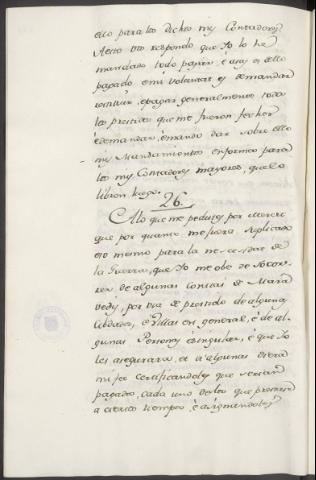 ello para los dichos mis Contadores.
A esto vos respondo que Yo lo he
mandado todo pagar: é assi es dello
pagado é mi voluntad es demandar
restituir, é pagar generalmente todos
los prestidos que me fueron fechos
é demandar, é mando dar sobre ello
mis Mandamientos en forma para
los mis Contadores mayores, que lo
libren luego.
26.
A lo que me pedistes por merced
que por quanto me fuera suplicado
eso mismo para la necesidad de
la Guerra, que Yo me obe de socor-
rer de algunas contias de Mara-
vedis, por via de prestido de algunas
Cibdades, é Villas en general, é de al-
gunas Personas é singular, é que Yo
les asegurara, et á algunas diera
mi fe certificandoles que serian
pagados, cada uno de lo que prestasen
a ciertos tiempos, é asignandoles